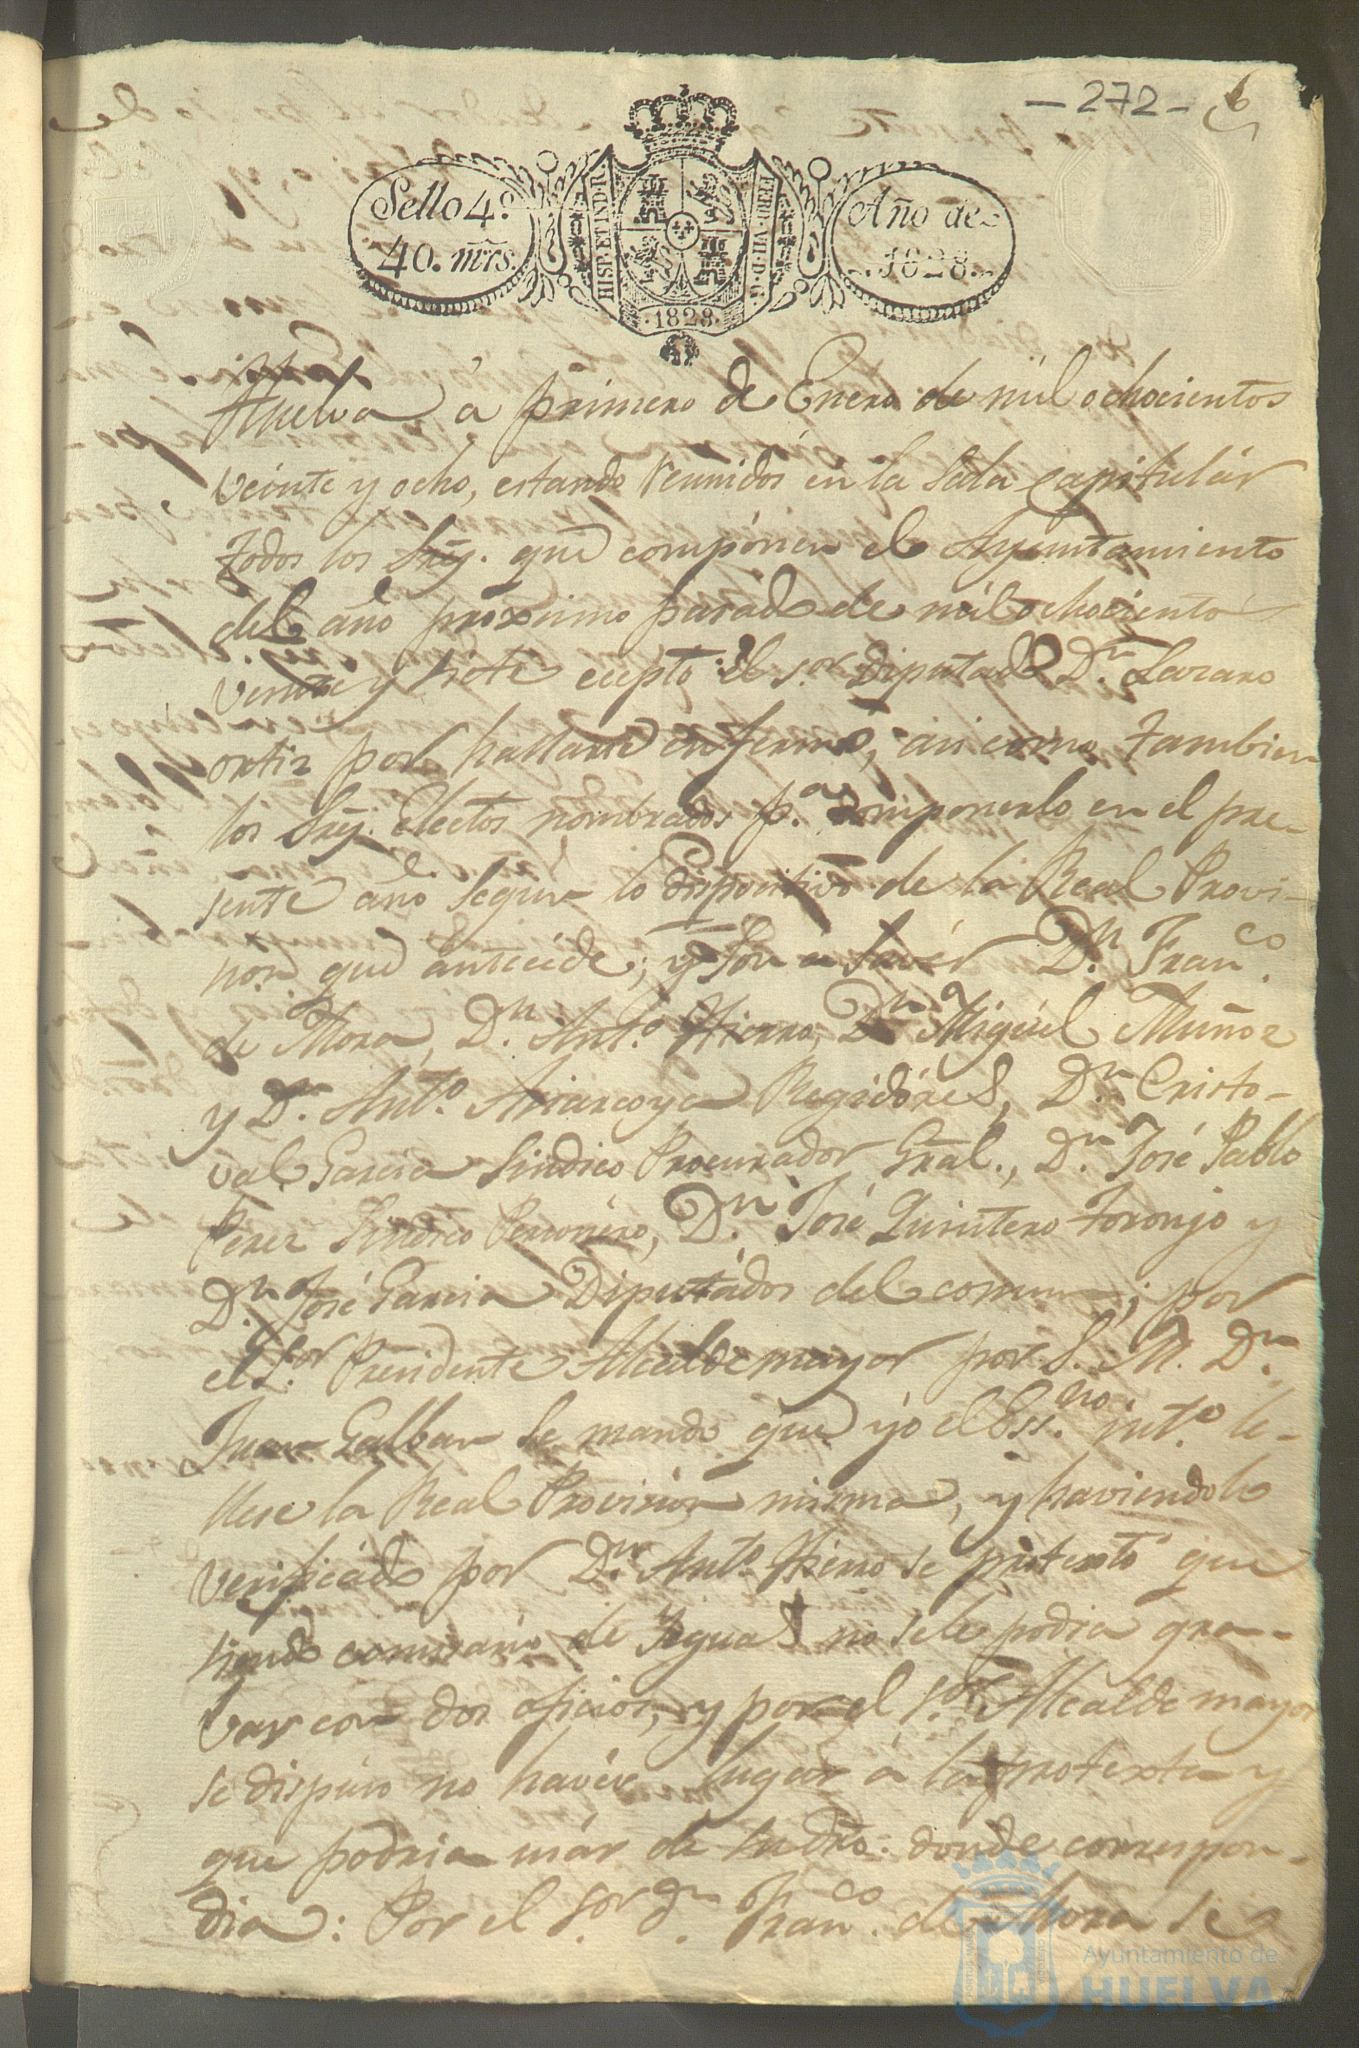 - 272 - 6
Sello 4.º
40. mrs.
HISP. ET IND. R.
FERD. VII. D. G.
Año de
1828.
1828.
Huelva á primero de Enero de mil ochocientos
veinte y ocho, estando reunidos en la Sala capitulár
todos los Sres. que compónen el Ayuntamiento
del año próximo pasado de mil ochociento
veinte y siete ecepto el Sor. Diputado Dn. Lazaro
ortiz por hallarse enfermo, asi como tambien
los Sres. electos nombrados pa. componerlo en el pre-
sente año segun lo dispocitivo de la Real Provi-
sion que antecéde; y son a savér Dn. Franco.
de Mora, Dn. Anto. Hierro, Dn. Miguel Muñoz
y Dn. Anto. Regidóres, Dn. Cristo-
val Garcia Sindico Procurador Gral., Dn. José Pablo
Perez Sindico Personéro, Dn. José Quintero Toronjo y
Dn. José Garcia Diputados del comun; por
el Sor. Presidente Alcalde mayor por S. M. Dn.
Juan Galban se mando que yo el Essno. jnto. le-
llese la Real Provision misma, y haviendolo
verificado por Dn. Anto. Hierro se protextó que
siendo comisario de no sele podia gra-
var con dos oficios, y por el Sor. Alcalde mayor
se dispuso no havér lugar á la protexta y
que podria usár de su dro. donde correspon-
dia: Por el Sor. Dn. Franco. de Mora se
Ayuntamiento de
HUELVA